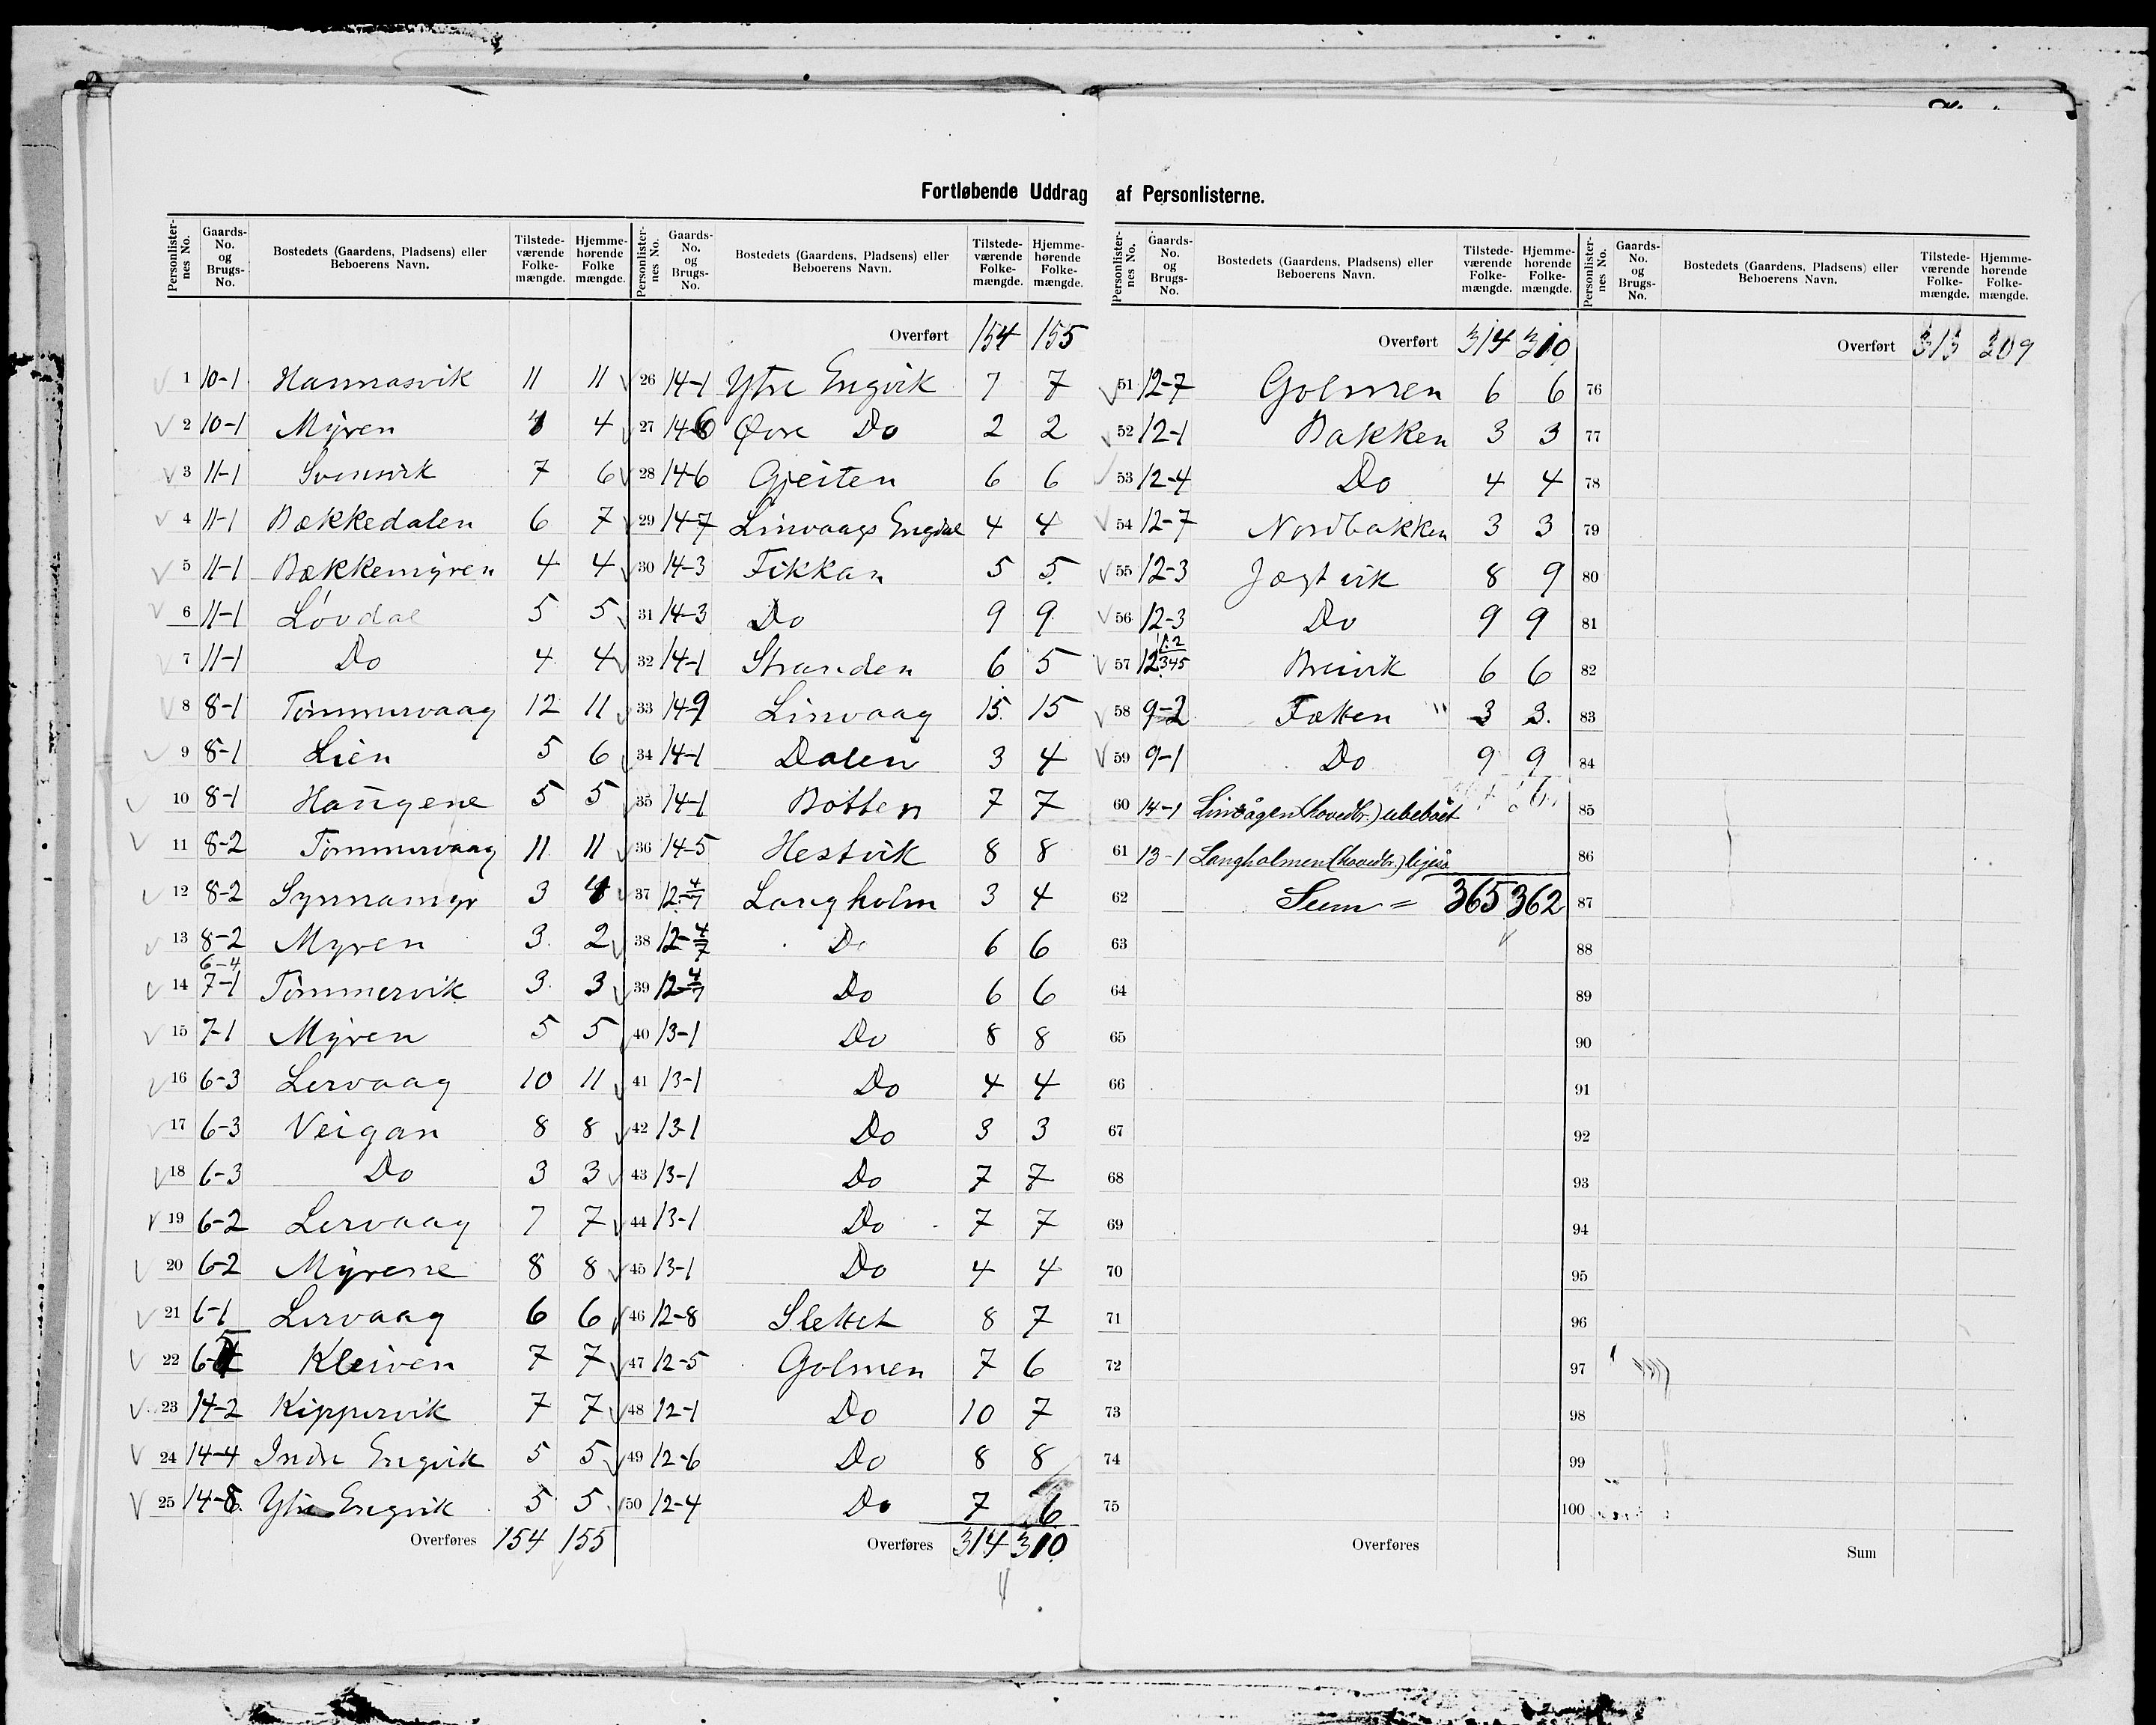 Fortløbende Uddrag af Personlisterne.
Personlisternes No. Gaards-No. og Brugs-No. Bostedets (Gaardens, Pladsens) eller Beboerens Navn. Tilstedeværende Folkemængde. Hjemmehørende Folkemængde.
1 10-1 Hannasvik 11 11
2 10-1 Myren 4 4
3 11-1 Svensvik 7 6
4 11-1 Bækkedalen 6 7
5 11-1 Bækkemyren 4 4
6 11-1 Løvdal 5 5
7 11-1 Do 4 4
8 8-1 Tømmervaag 12 11
9 8-1 Lien 5 6
10 8-1 Haugene 5 5
11 8-2 Tømmervaag 11 11
12 8-2 Synnamyr 3 4
13 8-2 Myren 3 2
14 6-4 7-1 Tømmervik 3 3
15 7-1 Myren 5 5
16 6-3 Lervaag 10 11
17 6-3 Veigan 8 8
18 6-3 Do 3 3
19 6-2 Lervaag 7 7
20 6-2 Myrene 8 8
21 6-1 Lervaag 6 6
22 Kleiven 7 7
23 14-2 Kippervik 7 7
24 14-4 Indre Engvik 5 5
25 14-8 Ytre Engvik 5 5
Overføres 154 155
Personlisternes No. Gaards-No. og Brugs-No. Bostedets (Gaardens, Pladsens) eller Beboerens Navn. Tilstedeværende Folkemængde. Hjemmehørende Folkemængde.
Overført 154 155
26 14-1 Ytre Engvik 7 7
27 14-6 Øvre Do 2 2
28 14-6 Gjeiten 6 6
29 14-7 Linvaags Engdal 4 4
30 14-3 Fikkan 5 5
31 14-3 Do 9 9
32 14-1 Stranden 6 5
33 14-9 Linvaag 15 15
34 14-1 Dalen 3 4
35 14-1 Botten 7 7
36 14-5 Hestvik 8 8
37 12-4/7 Langholm 3 4
38 12-4/7 Do 6 6
39 12-4/7 Do 6 6
40 13-1 Do 8 8
41 13-1 Do 4 4
42 13-1 Do 3 3
43 13-1 Do 7 7
44 13-1 Do 7 7
45 13-1 Do 4 4
46 12-8 Slettet 8 7
47 12-5 Golmen 7 6
48 12-1 Do 10 7
49 12-6 Do 8 8
50 12-4 Do 7 6
Overføres 314 310
Personlisternes No. Gaards-No. og Brugs-No. Bostedets (Gaardens, Pladsens) eller Beboerens Navn. Tilstedeværende Folkemængde. Hjemmehørende Folkemængde.
Overført 314 310
51 12-7 Golmen 6 6
52 12-1 Bakken 3 3
53 12-4 Do 4 4
54 12-7 Nordbakken 3 3
55 12-3 Jægtvik 8 9
56 12-3 Do 9 9
57 12 1.2/345 Breivik 6 6
58 9-2 Fætten " 3 3.
59 9-1 Do 9 9
60 14-1 Linvågen (hovedbr.) ubeboet
61 13-1 Langholmen (hovedbr.) ligeså
62 Sum = 365 362
63
64
65
66
67
68
69
70
71
72
73
74
75
Overføres
Personlisternes No. Gaards-No. og Brugs-No. Bostedets (Gaardens, Pladsens) eller Beboerens Navn. Tilstedeværende Folkemængde. Hjemmehørende Folkemængde.
Overført 313 309
76
77
78
79
80
81
82
83
84
85
86
87
88
89
90
91
92
93
94
95
96
97
98
99
100
Sum